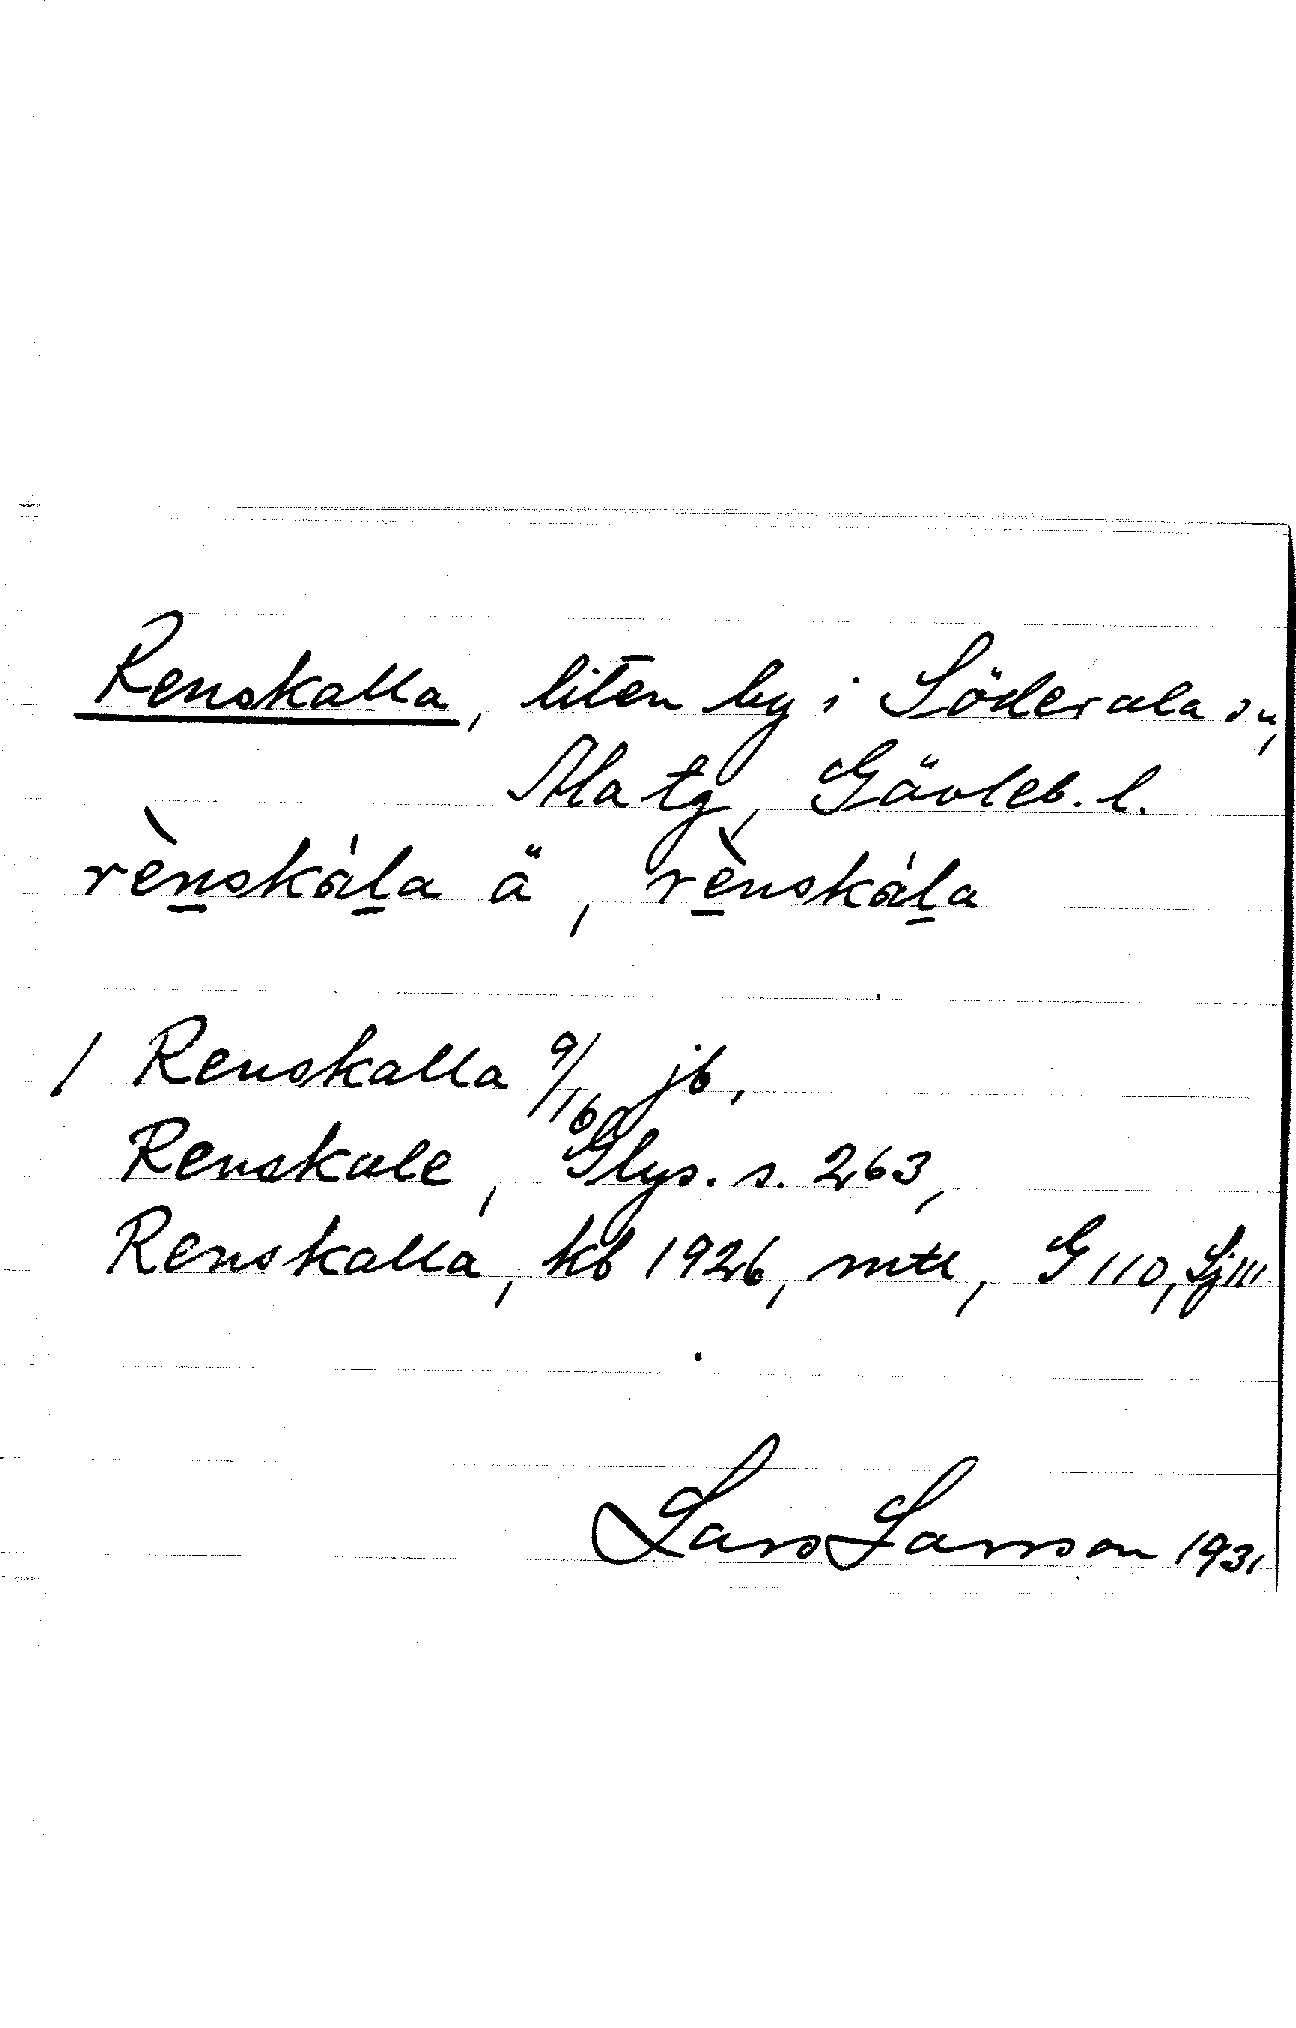 Renskalla, liten by i Söderala sn,
Ala tg, Gävleb. l.
rènskála ä, rènskála
1 Renskalla 9/16 jb,
Renskale, Glys. s. 263,
Renskalla, kb 1926, mtl, G 110, Sj III
Lars Larsson 1931